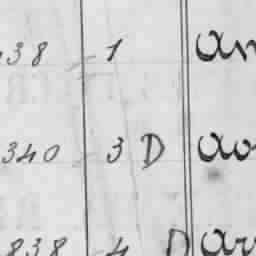 38 1 an
340 3 D ao
838 4 D ar